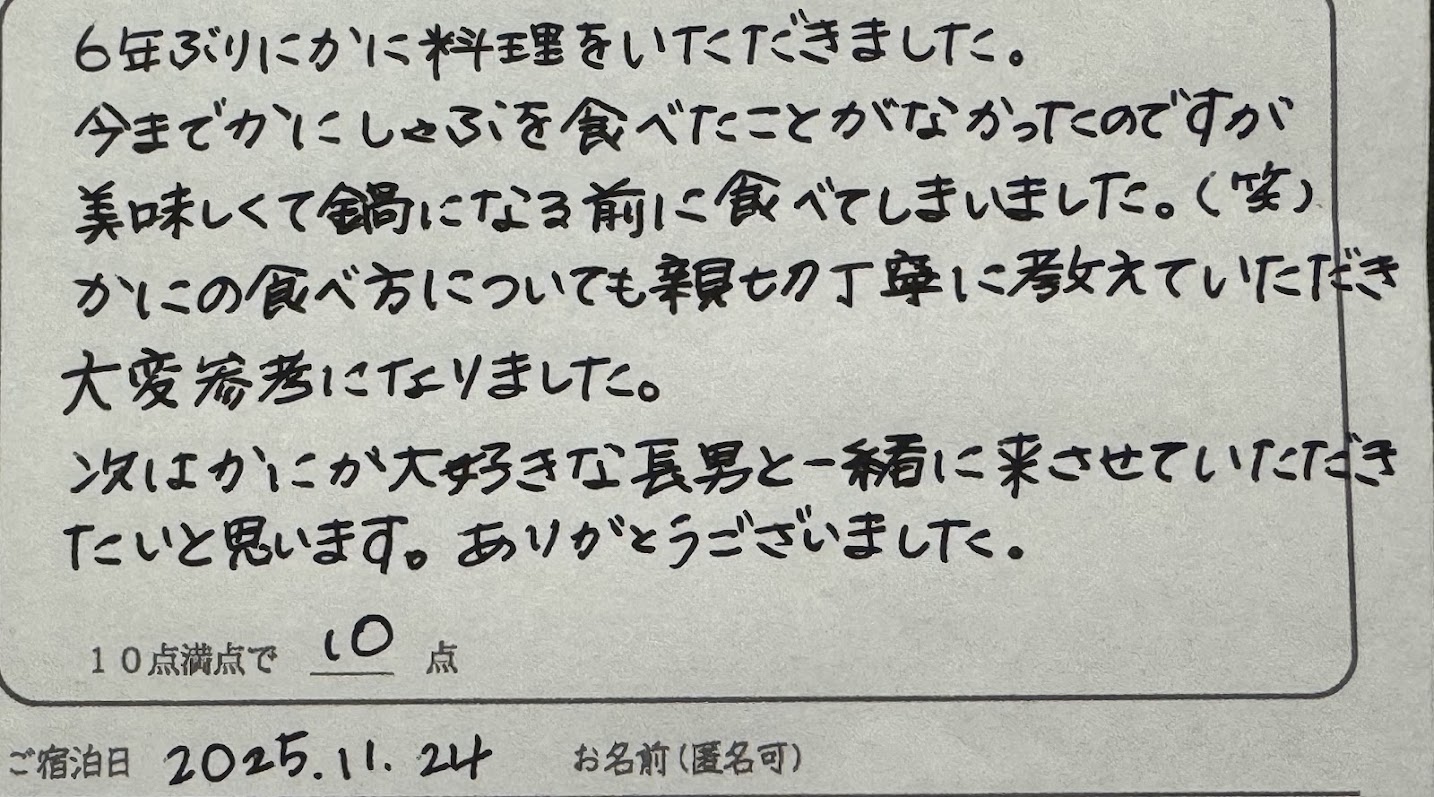 6年ぶりにかに料理をいただきました。
今までかにしゃぶを食べたことがなかったのですが
美味しくて鍋になる前に食べてしまいました。(笑)
かにの食べ方についても親切丁寧に教えていただき
大変参考になりました。
次はかにが大好きな長男と一緒に来させていただき
たいと思います。ありがとうございました。
10点満点で 10 点
ご宿泊日 2025.11.24 お名前(匿名可)